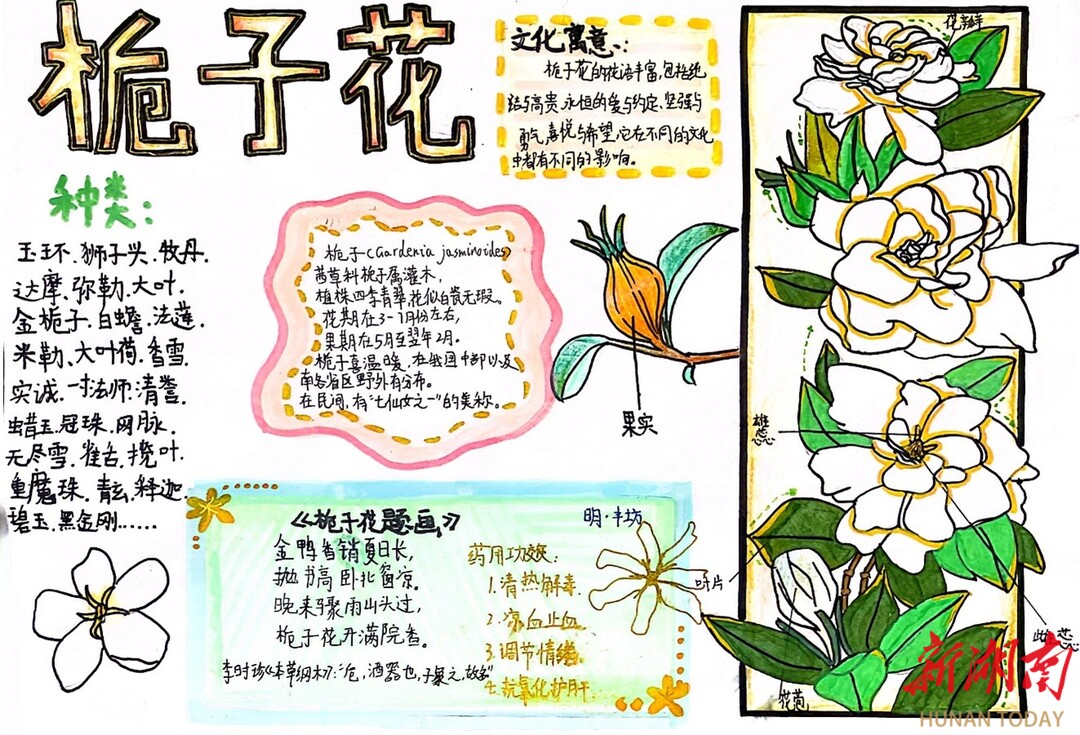 栀子花
文化寓意:
栀子花的花语丰富,包括纯
洁与高贵、永恒的爱与约定、坚强与
勇气、喜悦与希望,它在不同的文化
中都有不同的影响。
种类:
玉玨环.狮子头.牧丹.
达摩.弥勒.大叶.
金栀子.白蟾.法莲.
米勒.大叶荷.香雪.
实诚.一寸法师.清誉.
蜡玉.冠珠.网脉.
无尽雪.雀舌.揽叶.
重魔珠.青玄.释迦.
碧玉.黑金刚......
栀子(Gardenia jasminoides)
茜草科栀子属灌木,
植株四季青翠,花似白瓷无瑕。
花期在3-7月份左右,
果期在5月至翌年2月。
栀子喜温暖,在我国中部以及
南各省区野外有分布。
在民间,有“七仙女之一”的美称。
果实
《栀子花题画》
明·丰坊
金鸭香销夏日长,
抛书高卧北窗凉。
晚来骤雨山头过,
栀子花开满院香。
李时珍《本草纲木》:“卮,酒器也,子象之,故名”
药用功效:
1.清热解毒.
2.凉血止血.
3.调节情绪.
4.抗氧化护肝.
花瓣
雄蕊
叶片
雌蕊
花苞
新湖南
HUNAN TODAY